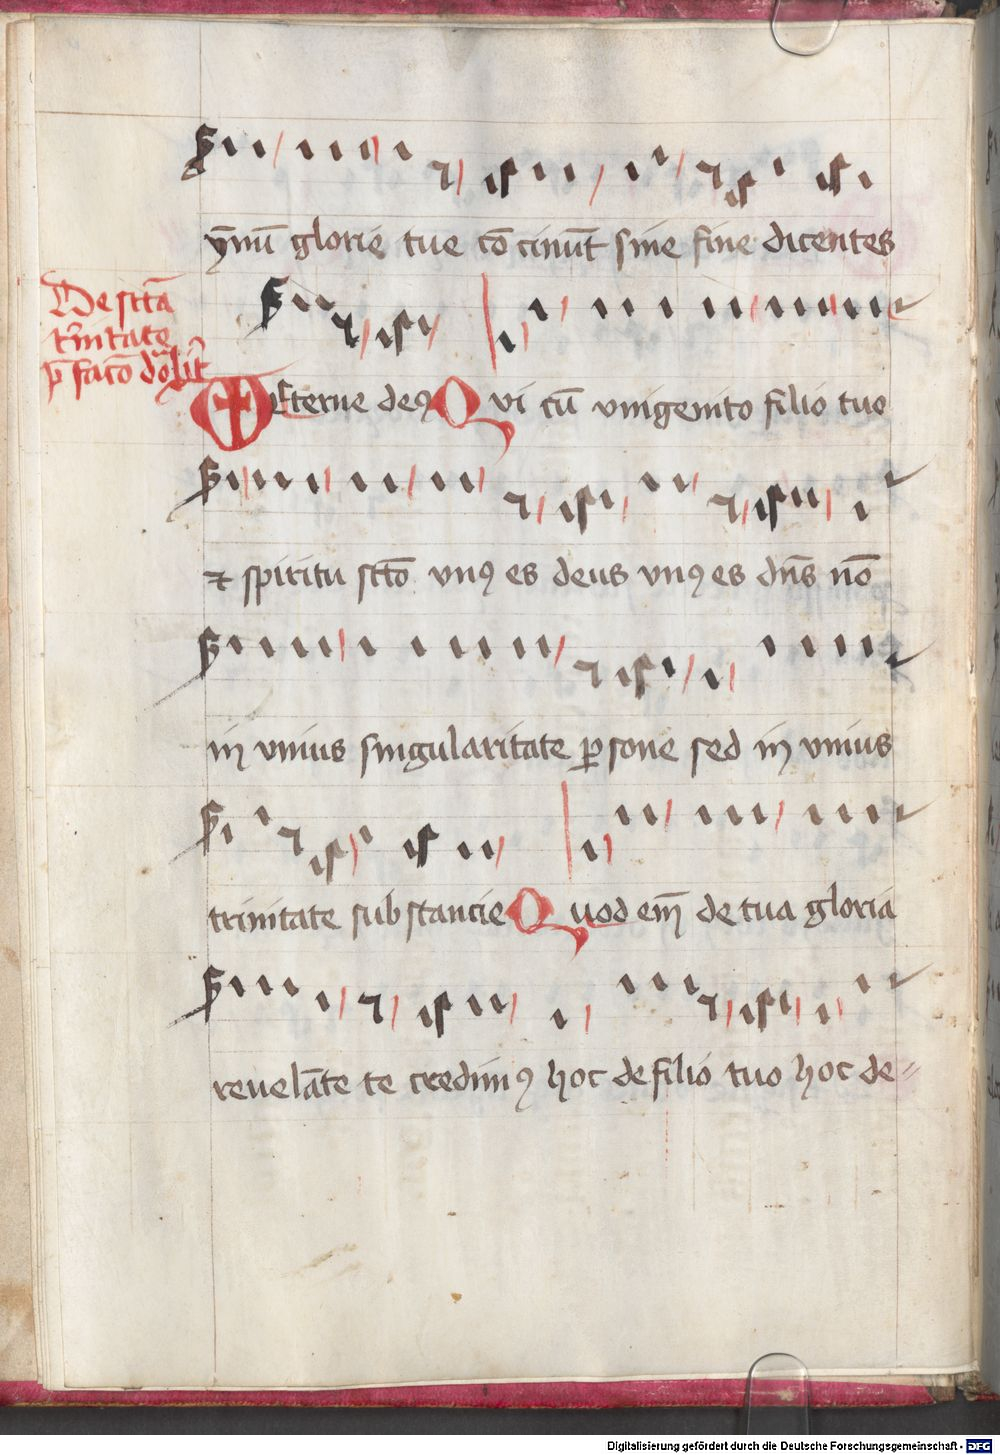 ȳmū glorie tue cō cinūt sine fine dicentes
De sctā
t'nitate
p̄ facō dō
Eterne deꝰ Qui cū vnigenito filio tuo
⁊ spiritu sctō vnꝰ es deus vnꝰ es dn̄s nō
in vnius singularitate ꝑsone sed in vnius
trinitate substancie Quod em̄ de tua gloria
reuelāte te credimꝰ hoc de filio tuo hoc de
Digitalisierung gefördert durch die Deutsche Forschungsgemeinschaft - DFG